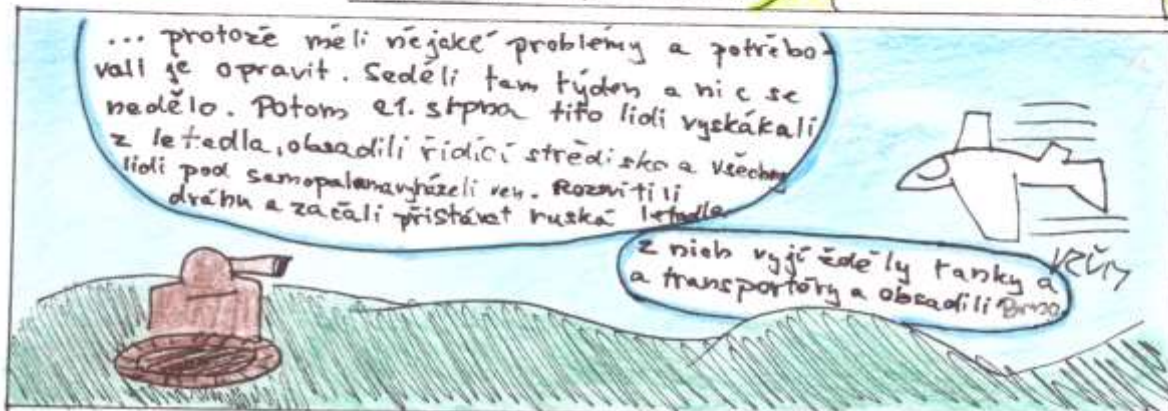 ... protože měli nějaké problémy a potřebo-
vali je opravit. Seděli tam týden a nic se
nedělo. Potom 21. srpna tito lidi vyskákali
z letadla, obsadili řídící středisko a všechny
lidi pod samopalama vyházeli ven. Rozsvítili
dráhu a začali přistávat ruská letadla
z nich vyjížděly tanky a
a transportéry a obsadili Brno
VRŽUM